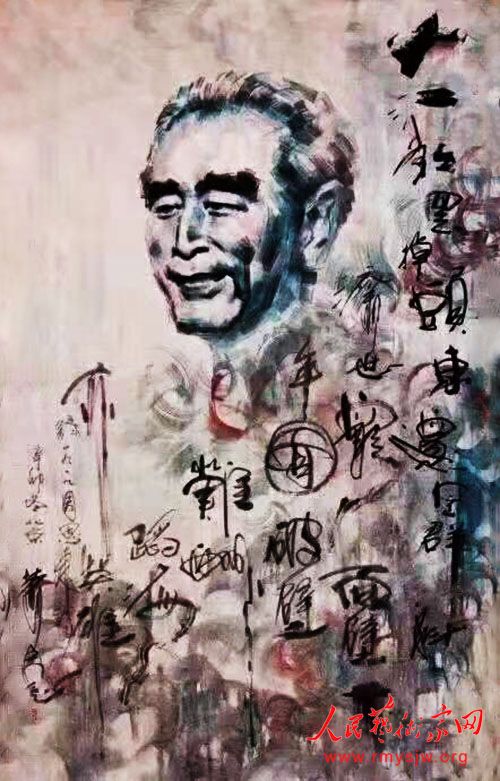 大江歌罷掉頭東邃密群科
濟世窮面壁十
年圖破壁
難酬
蹈海
亦
英雄
人民藝術家网
www.rmysjw.org